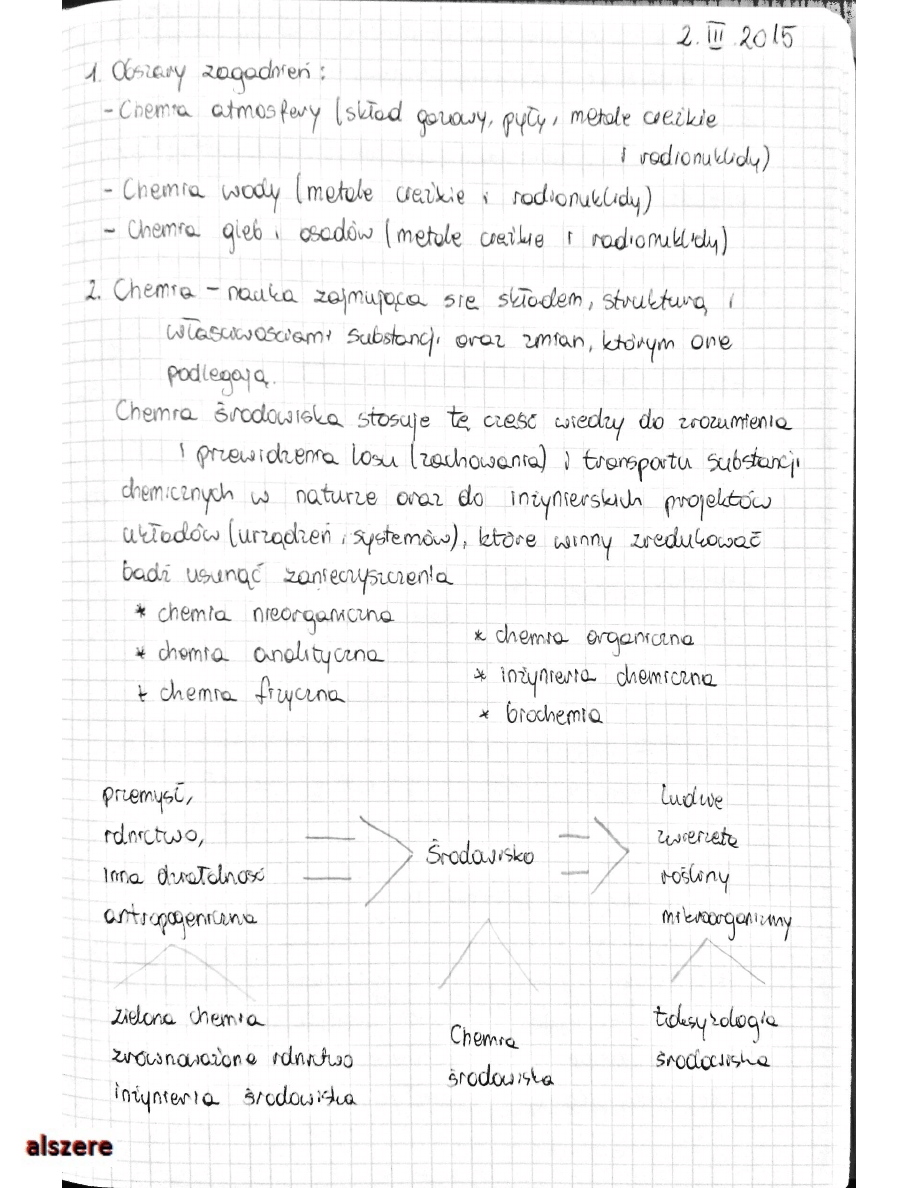 2. III 2015
1. Obszary zagadnień:
- Chemia atmosfery (skład gazowy, pyły, metale ciężkie
i radionuklidy)
- Chemia wody (metale ciężkie i radionuklidy)
- Chemia gleb i osadów (metale ciężkie i radionuklidy)
2. Chemia - nauka zajmująca się składem, strukturą i
właściwościami substancji oraz zmian, którym one
podlegają.
Chemia środowiska stosuje tę część wiedzy do zrozumienia
i przewidzenia losu (zachowania) i transportu substancji
chemicznych w naturze oraz do inżynierskich projektów
układów (urządzeń i systemów), które winny zredukować
bądź usunąć zanieczyszczenia
* chemia nieorganiczna
* chemia organiczna
* chemia analityczna
* inżynieria chemiczna
* chemia fizyczna
* biochemia
przemysł,
rolnictwo,
inna działalność
antropogeniczna
Środowisko
ludzie
zwierzęta
rośliny
mikroorganizmy
zielona chemia
zrównoważone rolnictwo
inżynieria środowiska
Chemia
środowiska
toksykologia
środowiska
alszere